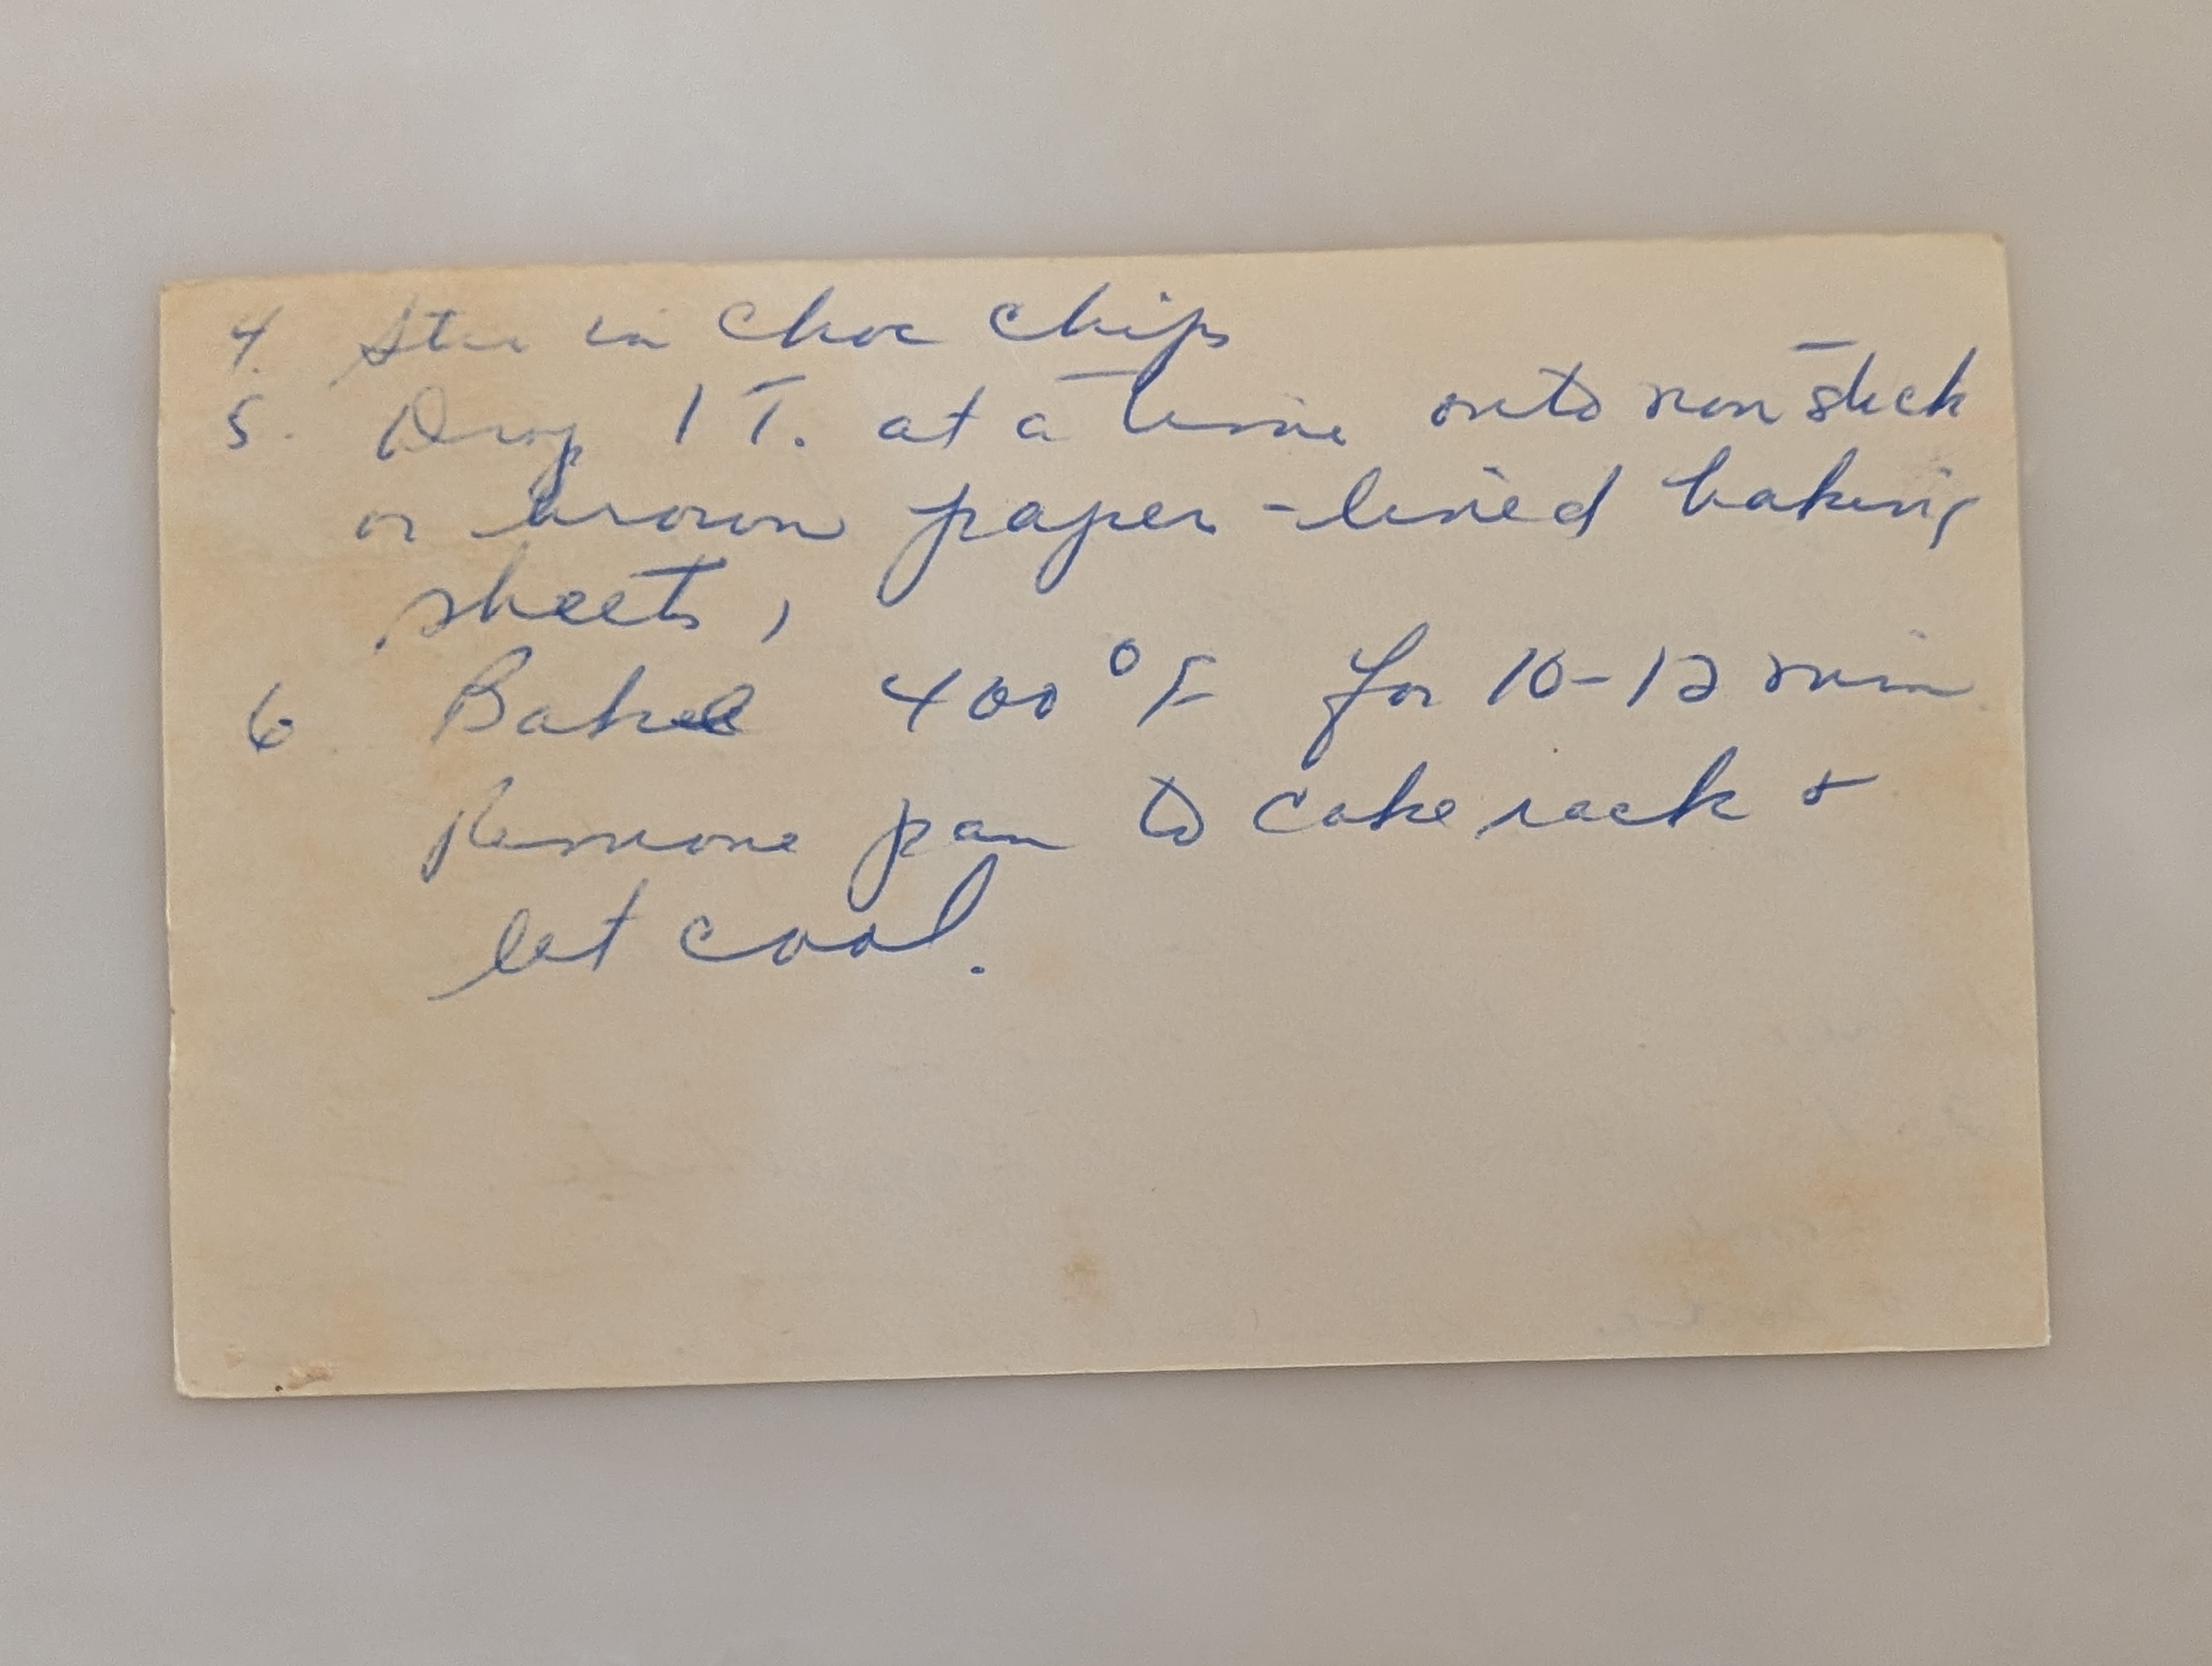 4. Stir in choc chips
5. Drop 1 T. at a time onto non stick
or brown paper-lined baking
sheets,
6 Bake 400°F for 10-12 min.
Remove pan to cake rack &
let cool.